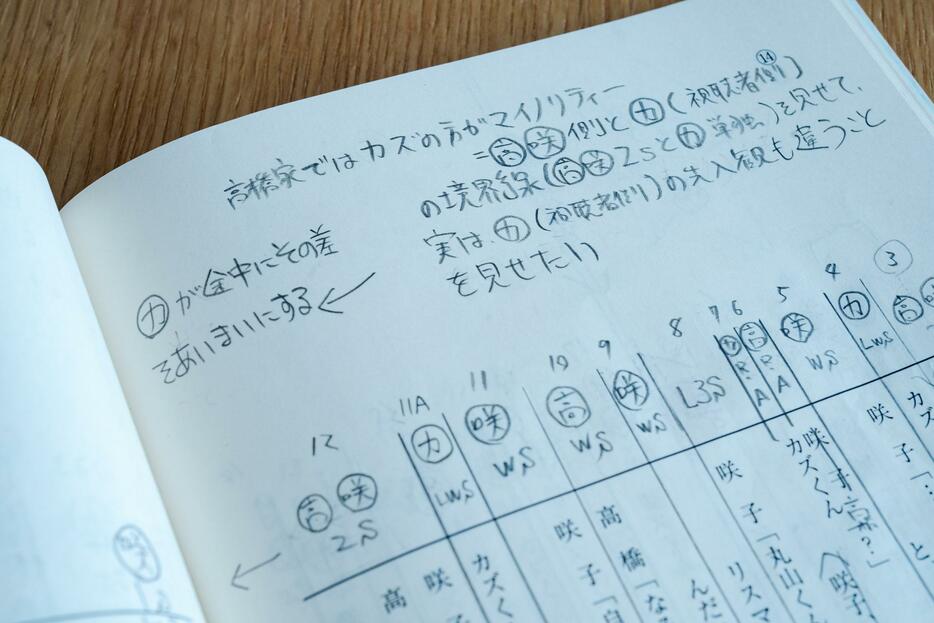 高橋家ではカズの方がマイノリティー
⑭
=㊤高 咲側とカ(視聴者側)
の境界線(高咲2Sとカ単独)を見せて、
実は、カ(視聴者側)の先入観も違うこと
を見せたい
カが途中にその差
をあいまいにする←
3
高
4
カ
LWS
5
咲
WS
6
高
R.A
7
カ
R.A
8
L3S
9
咲
WS
10
高
WS
11
咲
WS
11A
カ
LWS
12
高 咲
2S
カズ
咲子「
カズくん
咲子「丸山くん
リスマ
んだ
高橋「な
咲子「自
カズく
咲
高
咲